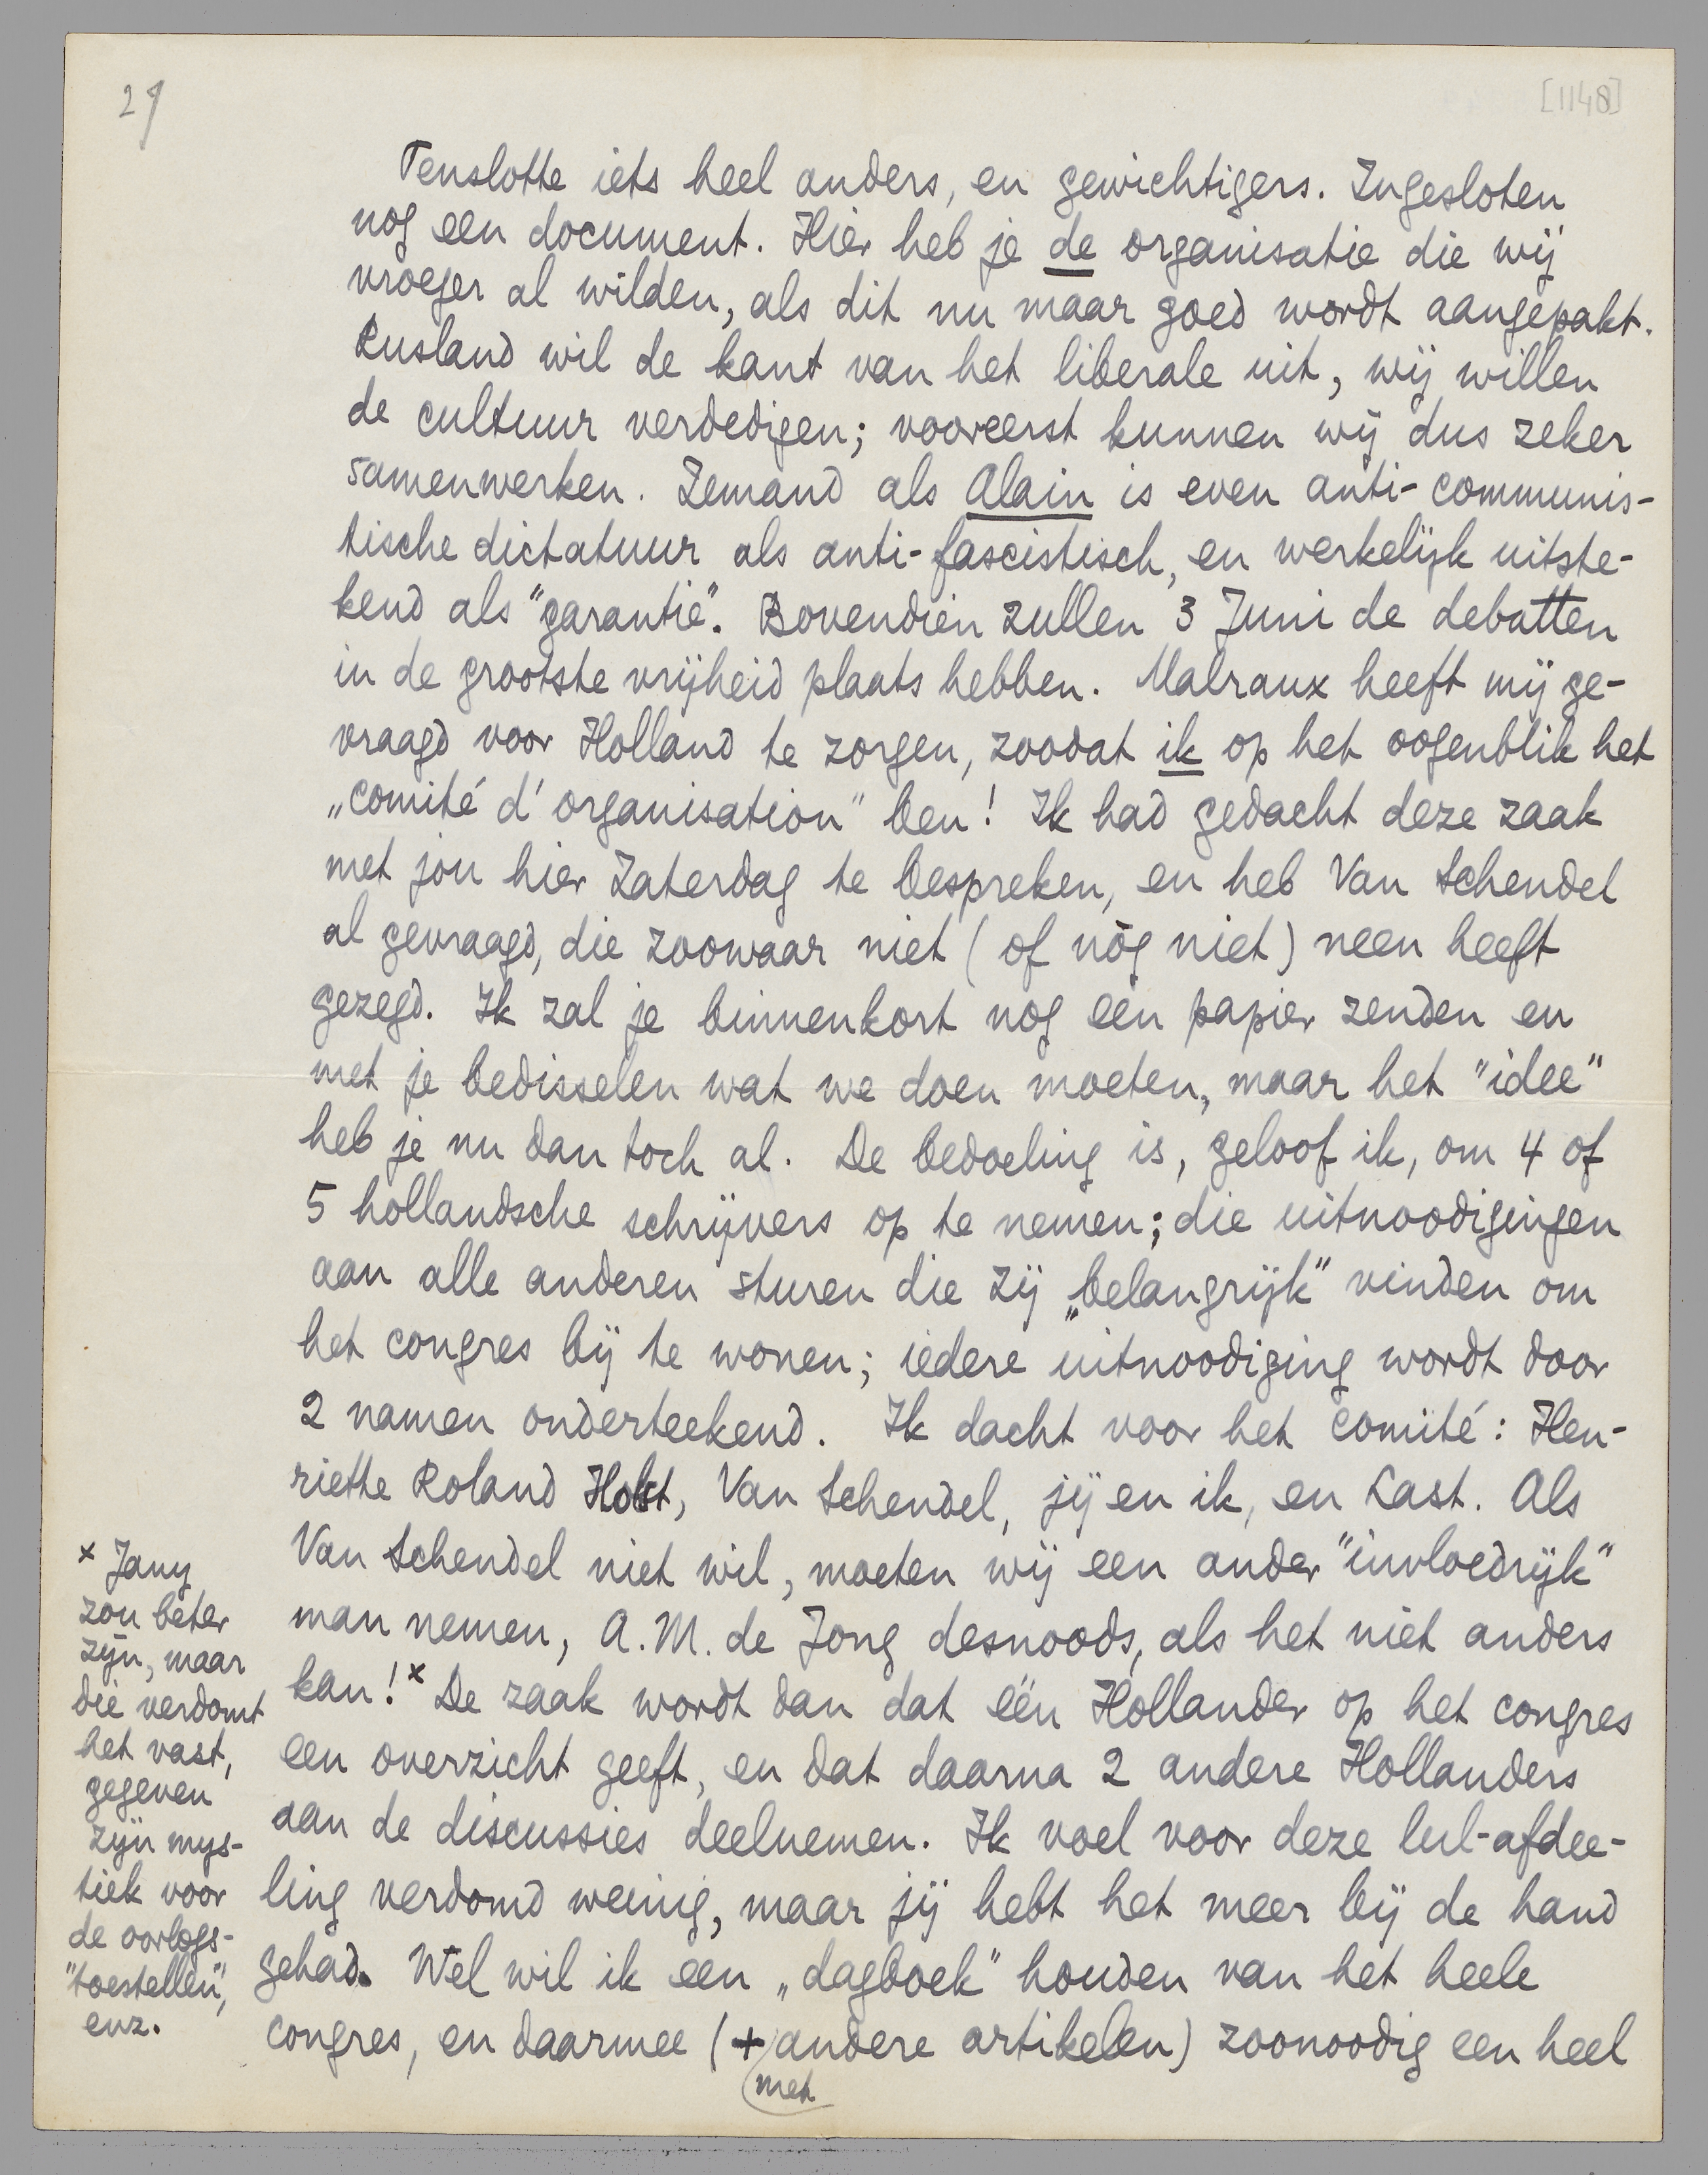 29
[1148]
Tenslotte iets heel anders, en gewichtigers. Ingesloten
nog een document. Hier heb je de organisatie die wij
vroeger al wilden, als dit nu maar goed wordt aangepakt.
Rusland wil de kant van het liberale uit, wij willen
de cultuur verdedigen; vooreerst kunnen wij dus zeker
samenwerken. Iemand als Alain is even anti-communis-
tische dictatuur als anti-fascistisch, en werkelijk uitste-
kend als "garantie". Bovendien zullen 3 Juni de debatten
in de grootste vrijheid plaats hebben. Malraux heeft mij ge-
vraagd voor Holland te zorgen, zoodat ik op het oogenblik het
„comité d'organisation" ben! Ik had gedacht deze zaak
met jou hier Zaterdag te bespreken, en heb Van Schendel
al gevraagd, die zoowaar niet (of nòg niet) neen heeft
gezegd. Ik zal je binnenkort nog één papier zenden en
met je bedisselen wat we doen moeten, maar het "idee"
heb je nu dan toch al. De bedoeling is, geloof ik, om 4 of
5 hollandsche schrijvers op te nemen; die uitnoodigingen
aan alle anderen sturen die zij „belangrijk" vinden om
het congres bij te wonen; iedere uitnoodiging wordt door
2 namen onderteekend. Ik dacht voor het comité: Hen-
riette Roland Holst, Van Schendel, jij en ik, en Last. Als
Van Schendel niet wil, moeten wij een ander "invloedrijk"
man nemen, A.M. de Jong desnoods, als het niet anders
kan!x De zaak wordt dan dat één Hollander op het congres
een overzicht geeft, en dat daarna 2 andere Hollanders
aan de discussies deelnemen. Ik voel voor deze lul-afdee-
ling verdomd weinig, maar jij hebt het meer bij de hand
gehad. Wel wil ik een „dagboek" houden van het heele
congres, en daarmee (+ andere artikelen) zoonoodig een heel
met
x Jany
zou beter
zijn, maar
die verdomt
het vast,
gegeven
zijn mys-
tiek voor
de oorlogs-
"toestellen",
enz.